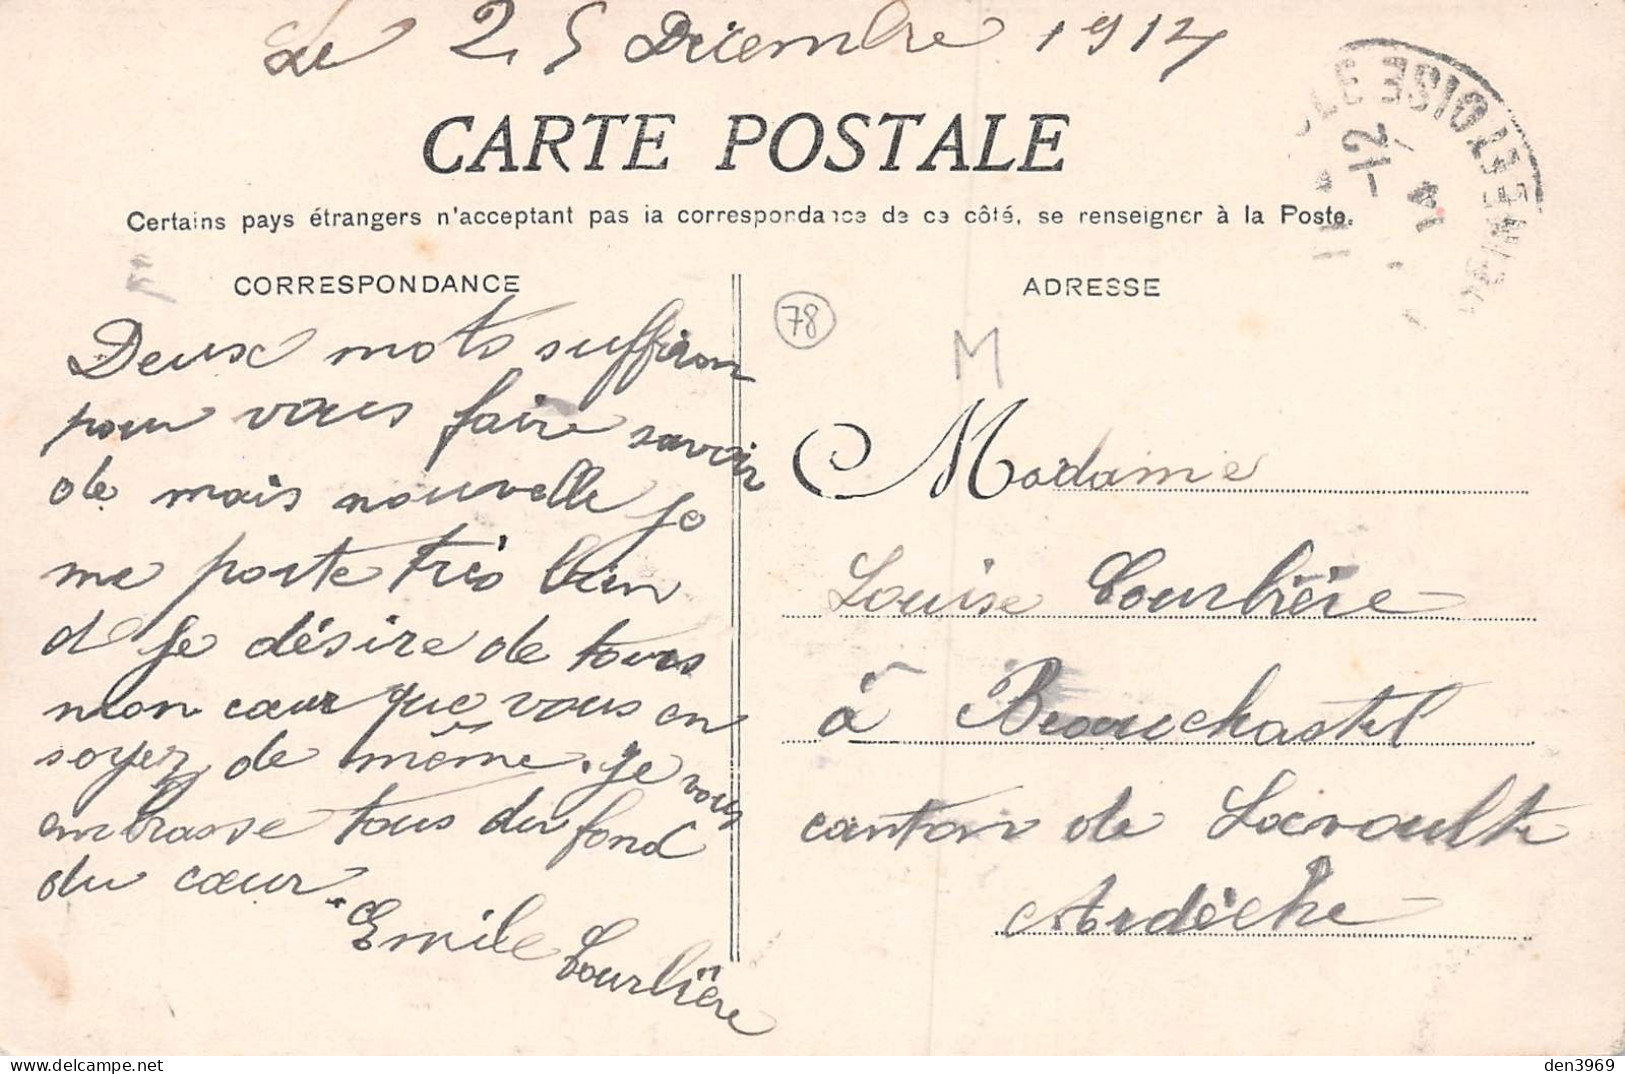 Le 25 Décembre 1914
CARTE POSTALE
Certains pays étrangers n'acceptant pas la correspondance de ce côté, se renseigner à la Poste.
CORRESPONDANCE
Deux mots suffiron
pour vous faire savoir
de mais nouvelle je
me porte très bien
d Je désire de tous
mon cœur que vous en
soyez de même. je vous
embrasse tous du fond
du cœur.
Emile Courbière
ADRESSE
78
M
Madame
Louise Courbière
à Beauchastel
canton de Lavoulte
Ardèche
SEINE-ET-OISE
-12
14
den3969